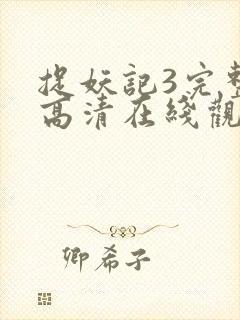 捉妖記3完整
高清在綫觀
卿希子